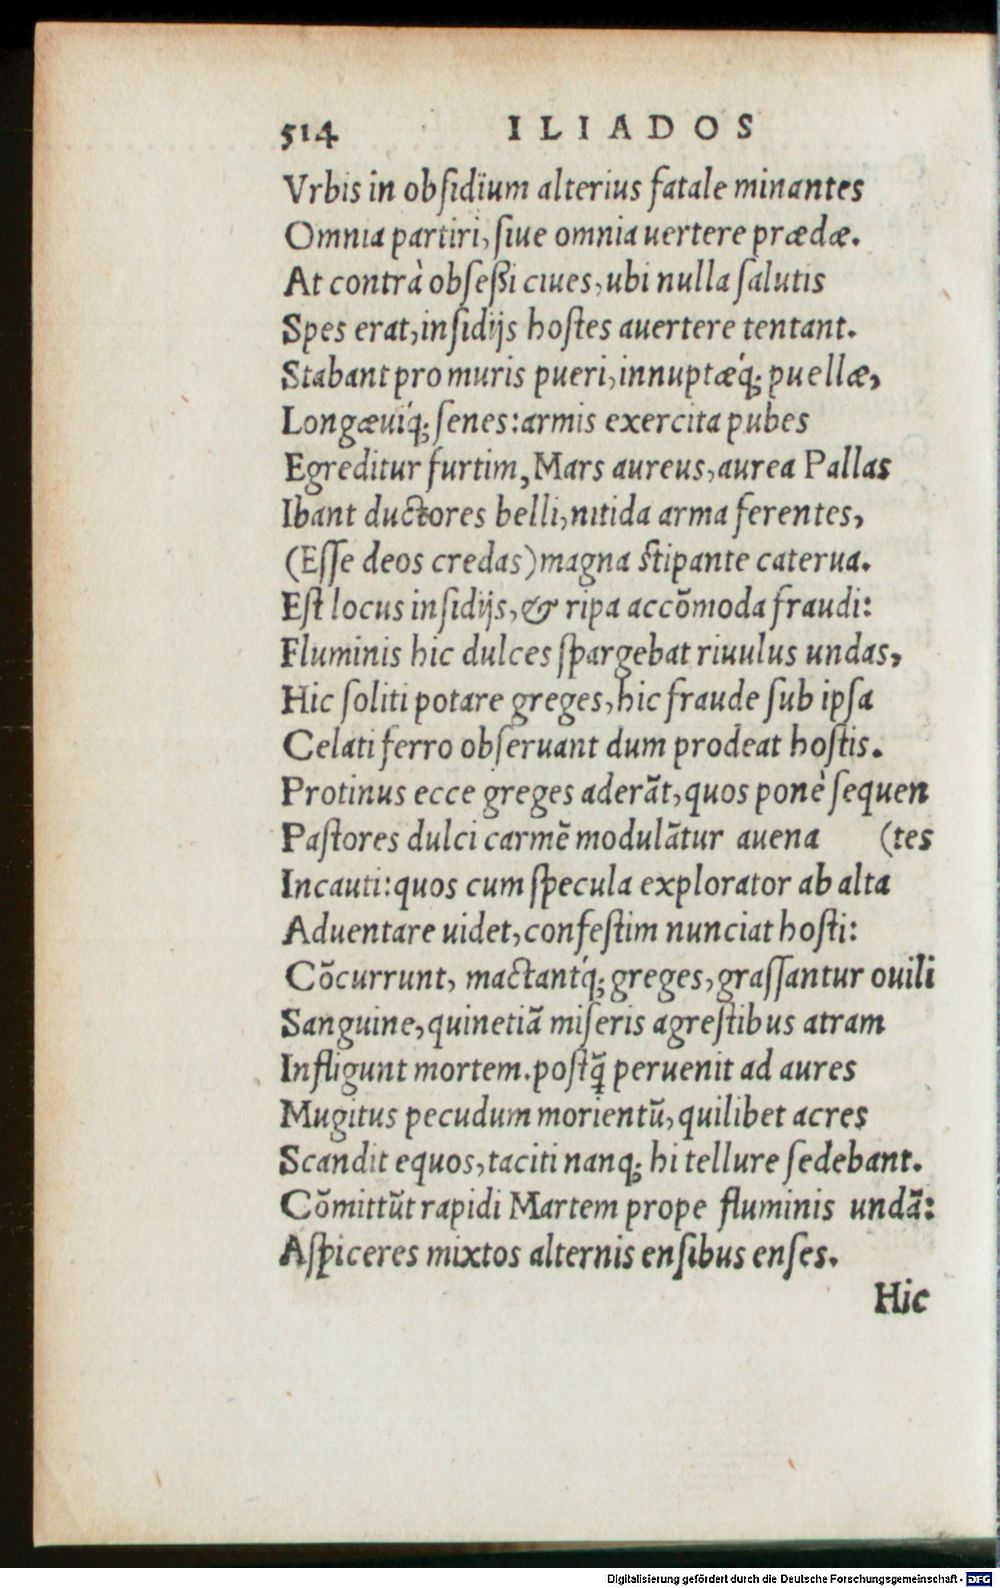 514 ILIADOS
Vrbis in obſidïum alterius fatale minantes
Omnia partiri, ſiue omnia uertere prædæ.
At contrà obſeßi ciues, ubi nulla ſalutis
Spes erat, inſidijs hoſtes auertere tentant.
Stabant pro muris pueri, innuptæq́; puellæ,
Longæuiq́; ſenes: armis exercita pubes
Egreditur furtim, Mars aureus, aurea Pallas
Ibant ductores belli, nitida arma ferentes,
(Eſſe deos credas) magna ſtipante caterua.
Eſt locus inſidijs, & ripa accõmoda fraudi:
Fluminis hic dulces ſpargebat riuulus undas,
Hic ſoliti potare greges, hic fraude ſub ipſa
Celati ferro obſeruant dum prodeat hoſtis.
Protinus ecce greges aderãt, quos ponè ſequen
Paſtores dulci carmẽ modulãtur auena (tes
Incauti: quos cum ſpecula explorator ab alta
Aduentare uidet, confeſtim nunciat hoſti:
Cõcurrunt, mactantq́; greges, graſſantur ouili
Sanguine, quinetiã miſeris agreſtibus atram
Infligunt mortem. poſtq̃ peruenit ad aures
Mugitus pecudum morientũ, quilibet acres
Scandit equos, taciti nanq; hi tellure ſedebant.
Cõmittũt rapidi Martem prope fluminis undã:
Aſpiceres mixtos alternis enſibus enſes.
Hic
Digitalisierung gefördert durch die Deutsche Forschungsgemeinschaft - DFG